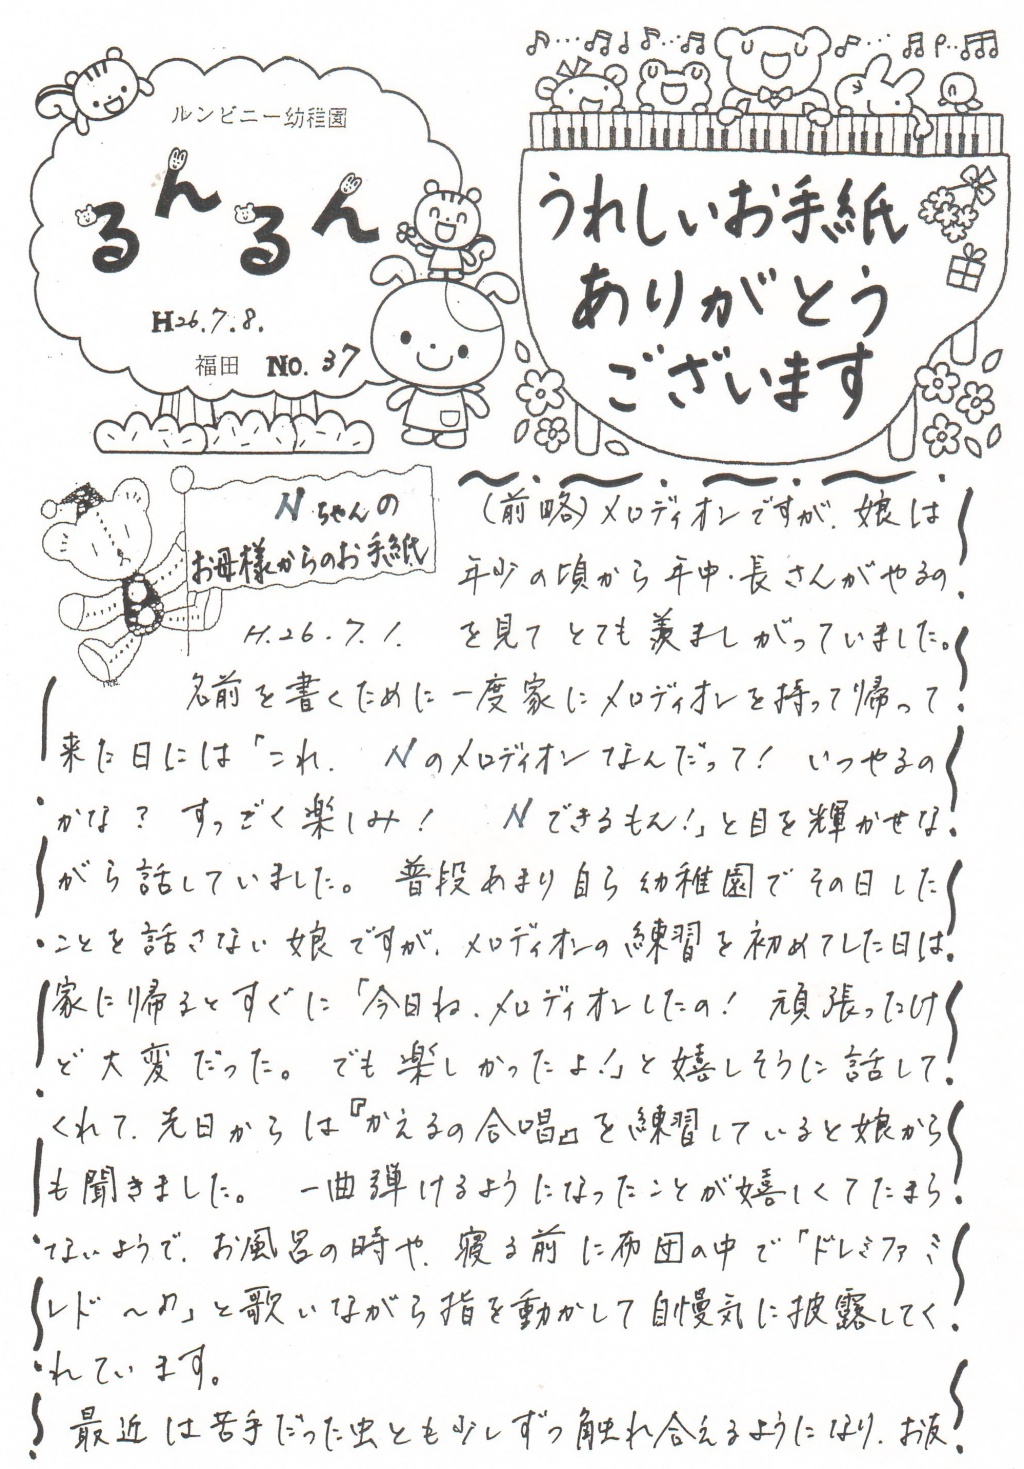 ルンビニー幼稚園
るんるん
H26.7.8.
福田 No.37
うれしいお手紙
ありがとう
ございます
Nちゃんの
お母様からのお手紙
H.26.7.1.
(前略)メロディオンですが、娘は
年少の頃から年中・長さんがやるの
を見てとても羨ましがっていました。
名前を書くために一度家にメロディオンを持って帰って
来た日には「これ、NのメロディオンなんだっT!いつやるの
かな?すっごく楽しみ!Nできるもん!」と目を輝かせな
がら話していました。普段あまり自ら幼稚園でその日した
ことを話さない娘ですが、メロディオンの練習を初めてした日は
家に帰るとすぐに「今日ね、メロディオンしたの!頑張ったけ
ど大変だった。でも楽しかったよ!」と嬉しそうに話して
くれて、先日からは『かえるの合唱』を練習していると娘から
も聞きました。一曲弾けるようになったことが嬉しくてたまら
ないようで、お風呂の時や、寝る前に布団の中で「ドレミファミ
レド〜♪」と歌いながら指を動かして自慢気に披露してく
れています。
最近は苦手だった虫とも少しずつ触れ合えるようになり、お友